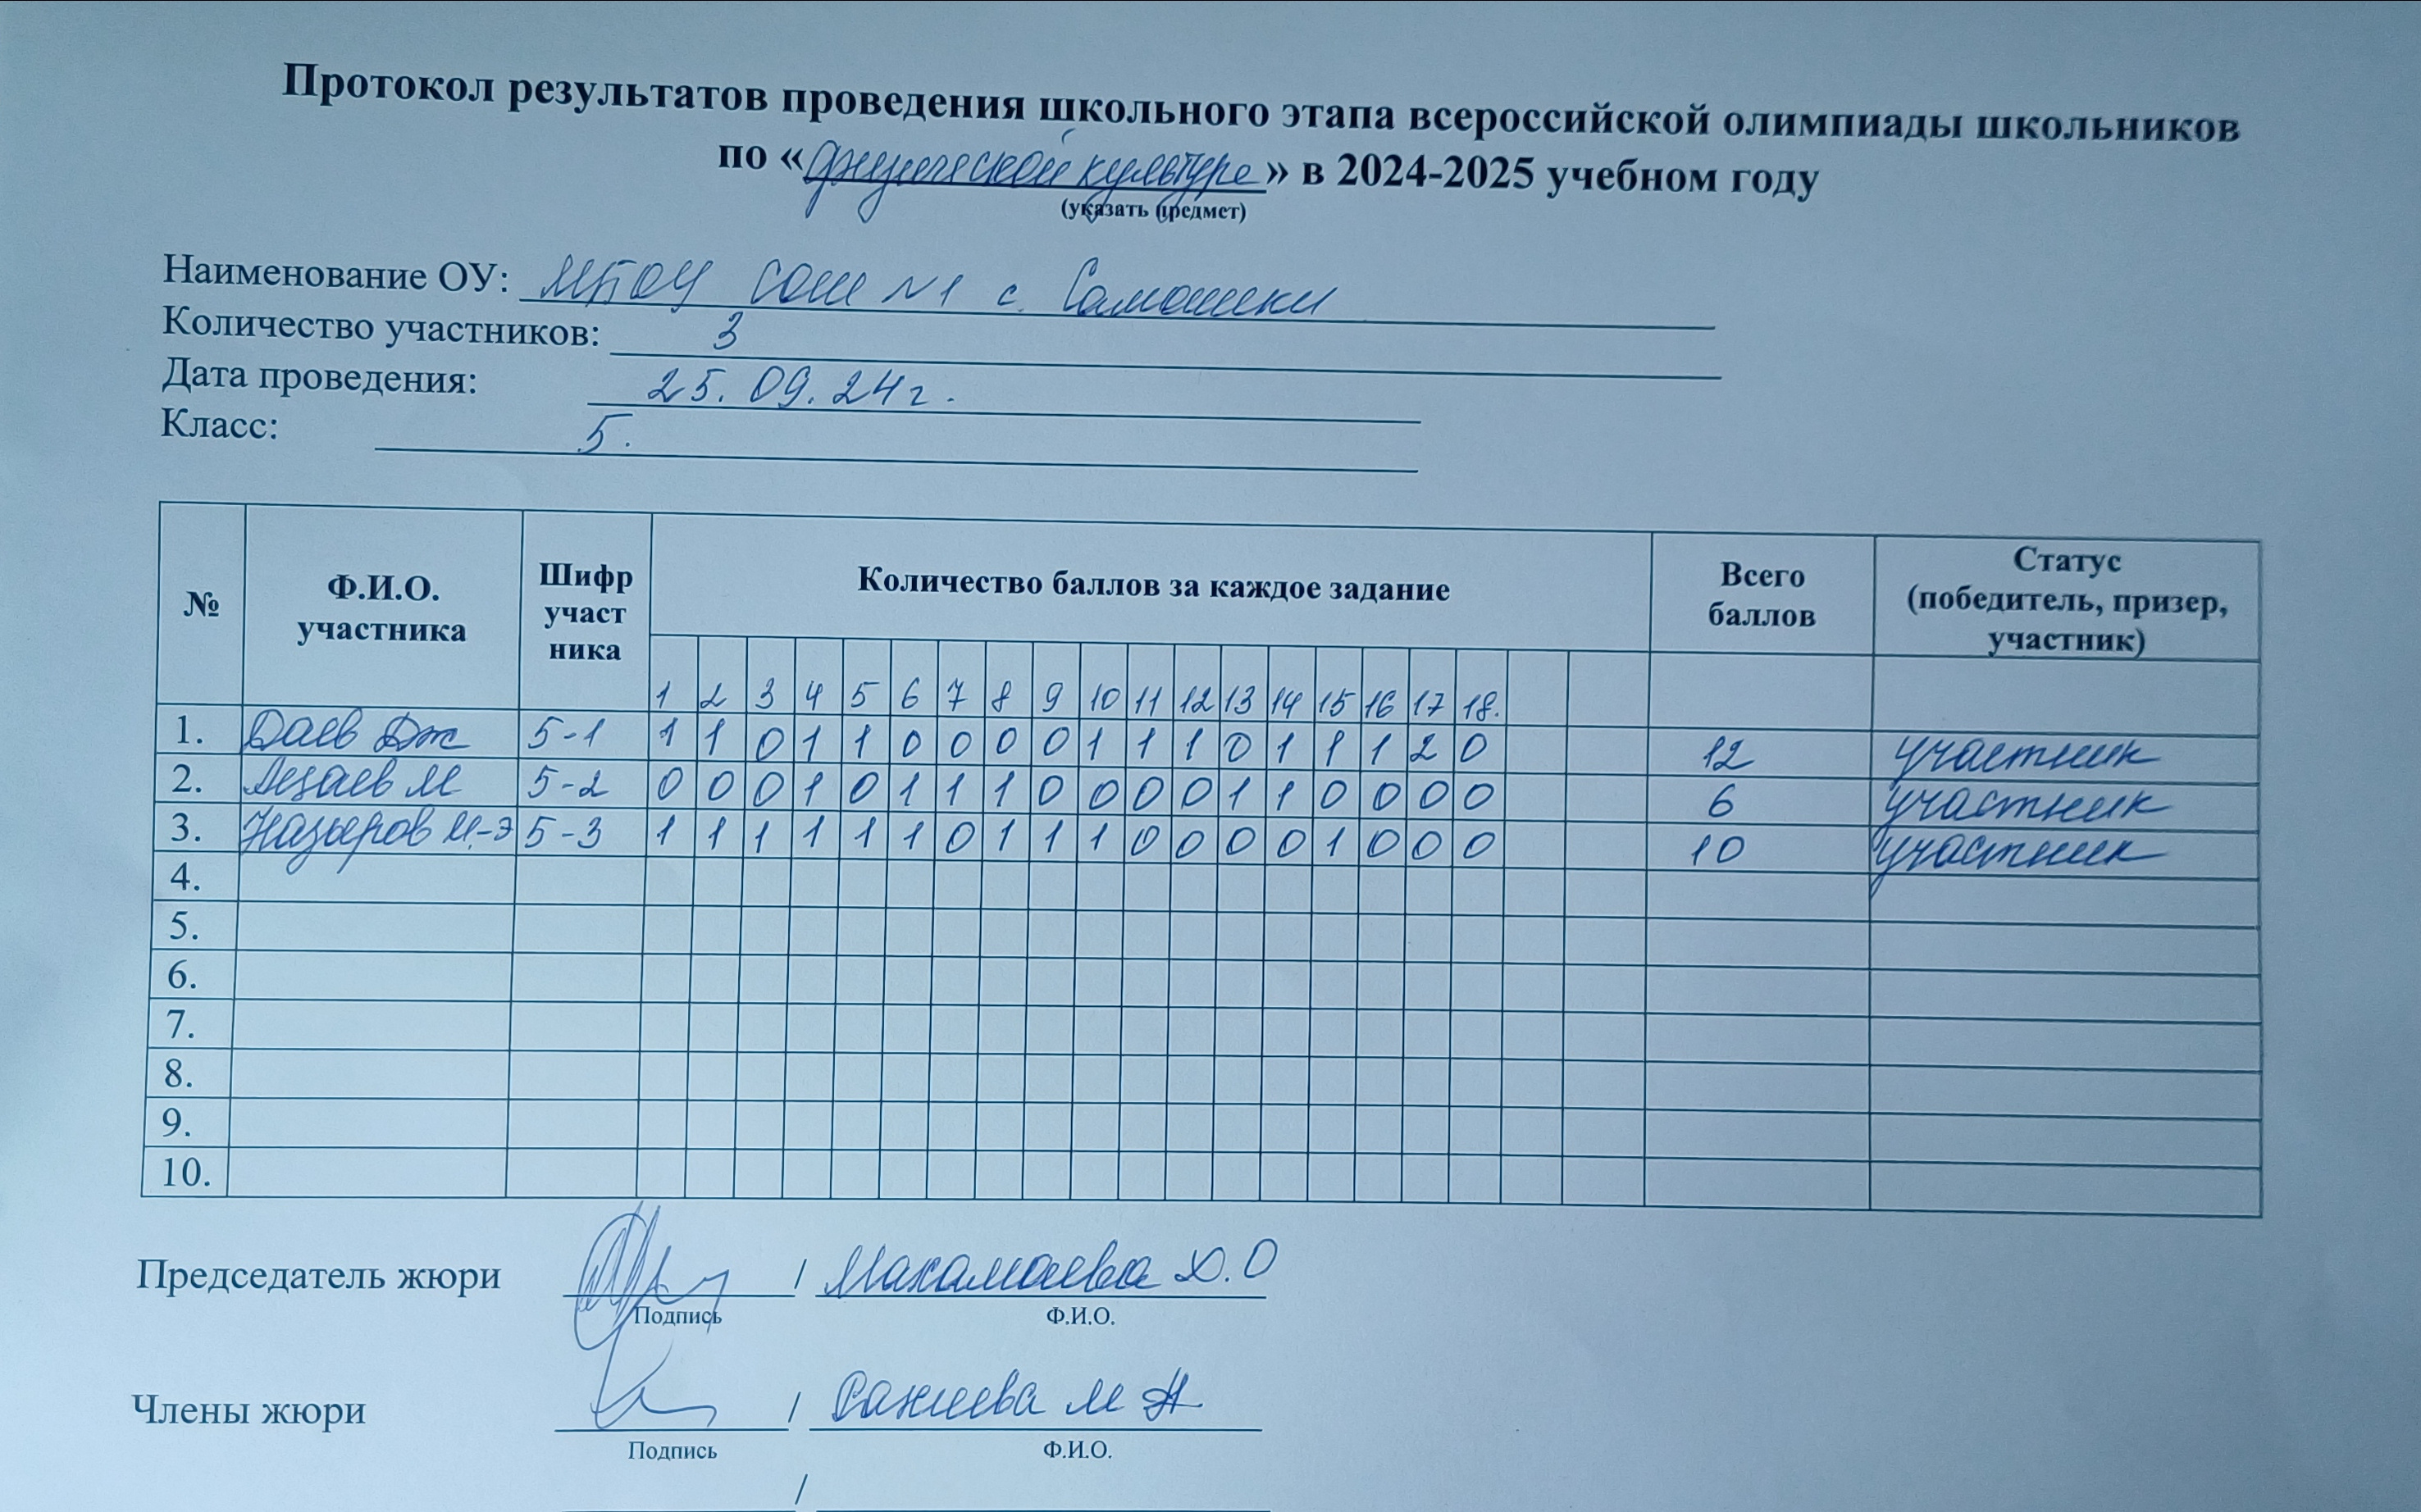 Протокол результатов проведения школьного этапа всероссийской олимпиады школьников
по «физической культуре» в 2024-2025 учебном году
(указать предмет)
Наименование ОУ: МБОУ СОШ №1 с. Самашки
Количество участников: 3
Дата проведения: 25.09.24г.
Класс: 5.
№ Ф.И.О. участника Шифр участ ника Количество баллов за каждое задание Всего баллов Статус (победитель, призер, участник)
1 2 3 4 5 6 7 8 9 10 11 12 13 14 15 16 17 18.
1. Даев Дж 5-1 1 1 0 1 1 0 0 0 0 1 1 1 0 1 1 1 2 0 12 участник
2. М 5-2 0 0 0 1 0 1 1 1 0 0 0 0 1 1 0 0 0 0 6 участник
3. Назыров И-Э 5-3 1 1 1 1 1 1 0 1 1 1 0 0 0 0 1 0 0 0 10 участник
4.
5.
6.
7.
8.
9.
10.
Председатель жюри / Махамаева Х.О
Подпись Ф.И.О.
Члены жюри / М
Подпись Ф.И.О.
/